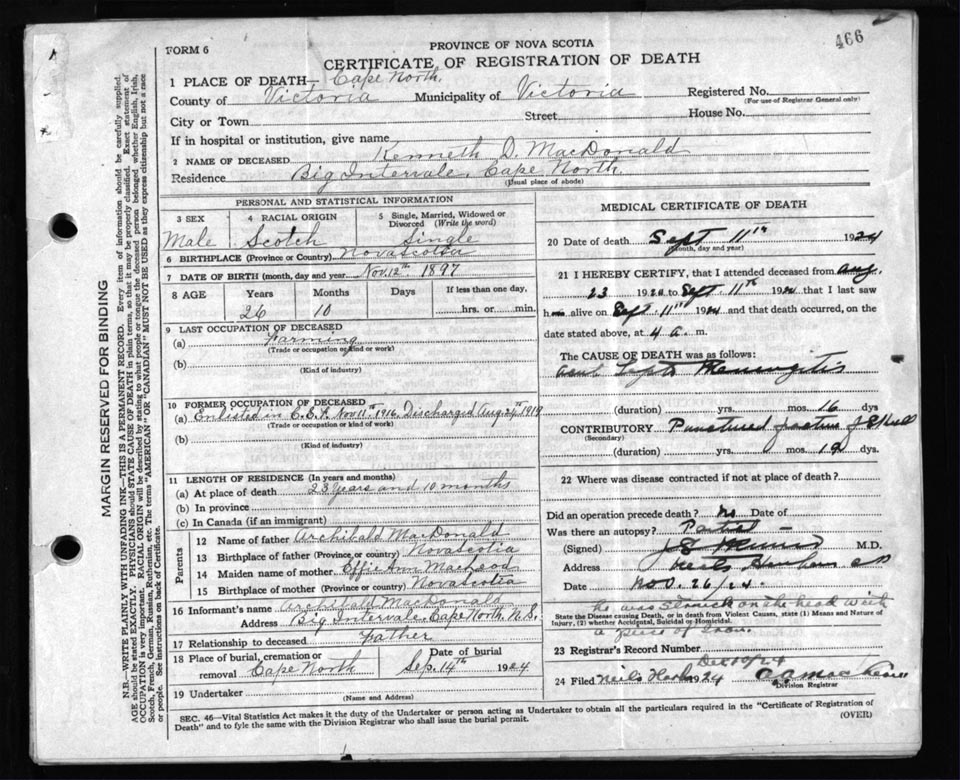 466
FORM 6
PROVINCE OF NOVA SCOTIA
CERTIFICATE OF REGISTRATION OF DEATH
1 PLACE OF DEATH— Cape North.
County of Victoria Municipality of Victoria Registered No.
(For use of Registrar General only)
City or Town Street House No.
If in hospital or institution, give name
2 NAME OF DECEASED Kenneth D. MacDonald
Residence Big Intervale, Cape North.
(Usual place of abode)
PERSONAL AND STATISTICAL INFORMATION
3 SEX 4 RACIAL ORIGIN 5 Single, Married, Widowed or Divorced (Write the word)
Male Scotch Single
6 BIRTHPLACE (Province or Country) Nova Scotia
7 DATE OF BIRTH (month, day and year) Nov. 12th 1897
8 AGE Years Months Days If less than one day,
26 10 hrs. or min.
9 LAST OCCUPATION OF DECEASED
(a) Farming
(Trade or occupation or kind or work)
(b)
(Kind of industry)
10 FORMER OCCUPATION OF DECEASED
(a) Enlisted in C.E.F. Nov 11th 1916. Discharged Aug. 24th 1919
(Trade or occupation or kind of work)
(b)
(Kind of industry)
11 LENGTH OF RESIDENCE (In years and months)
(a) At place of death 23 years and 10 months
(b) In province
(c) In Canada (if an immigrant)
Parents
12 Name of father Archibald MacDonald
13 Birthplace of father (Province or country) Nova Scotia
14 Maiden name of mother Effie Ann MacLeod
15 Birthplace of mother (Province or country) Nova Scotia
16 Informant's name Archibald MacDonald
Address Big Intervale, Cape North, N.S.
17 Relationship to deceased Father
18 Place of burial, cremation or removal Cape North Date of burial Sep. 14th 1924
19 Undertaker
(Name and Address)
MEDICAL CERTIFICATE OF DEATH
20 Date of death Sept 11th 1924
(Month, day and year)
21 I HEREBY CERTIFY, that I attended deceased from Aug.
23 1924 to Sept. 11th 1924 that I last saw
him alive on Sept 11th 1924 and that death occurred, on the
date stated above, at 4 a. m.
The CAUSE OF DEATH was as follows:
(duration) yrs. mos. 16 dys
CONTRIBUTORY Punctured fracture of Skull
(Secondary)
(duration) yrs. mos. 19 dys.
22 Where was disease contracted if not at place of death?
Did an operation precede death? No Date of
Was there an autopsy? Partial —
(Signed) M.D.
Address Neils Harbour
Date Nov. 26/24.
he was Struck on the head with
State the Disease causing Death, or in death from Violent Causes, state (1) Means and Nature of
Injury, (2) whether Accidental, Suicidal or Homicidal.
a piece of Iron.
23 Registrar's Record Number
Dec 10/24
24 Filed Neils Harbor 1924
Division Registrar
SEC. 46—Vital Statistics Act makes it the duty of the Undertaker or person acting as Undertaker to obtain all the particulars required in the "Certificate of Registration of
Death" and to fyle the same with the Division Registrar who shall issue the burial permit.
(OVER)
MARGIN RESERVED FOR BINDING
N.B.—WRITE PLAINLY WITH UNFADING INK—THIS IS A PERMANENT RECORD. Every item of information should be carefully supplied.
AGE should be stated EXACTLY. PHYSICIANS should STATE CAUSE OF DEATH in plain terms, so that it may be properly classified. Exact statement of
OCCUPATION is very important. RACIAL ORIGIN will be described by stating to what people or tongue the deceased person belonged whether English, Irish,
Scotch, French, German, Russian, Ruthenian, etc. The terms "AMERICAN" OR "CANADIAN" MUST NOT BE USED as they express citizenship but not a race
or people. See instructions on back of Certificate.